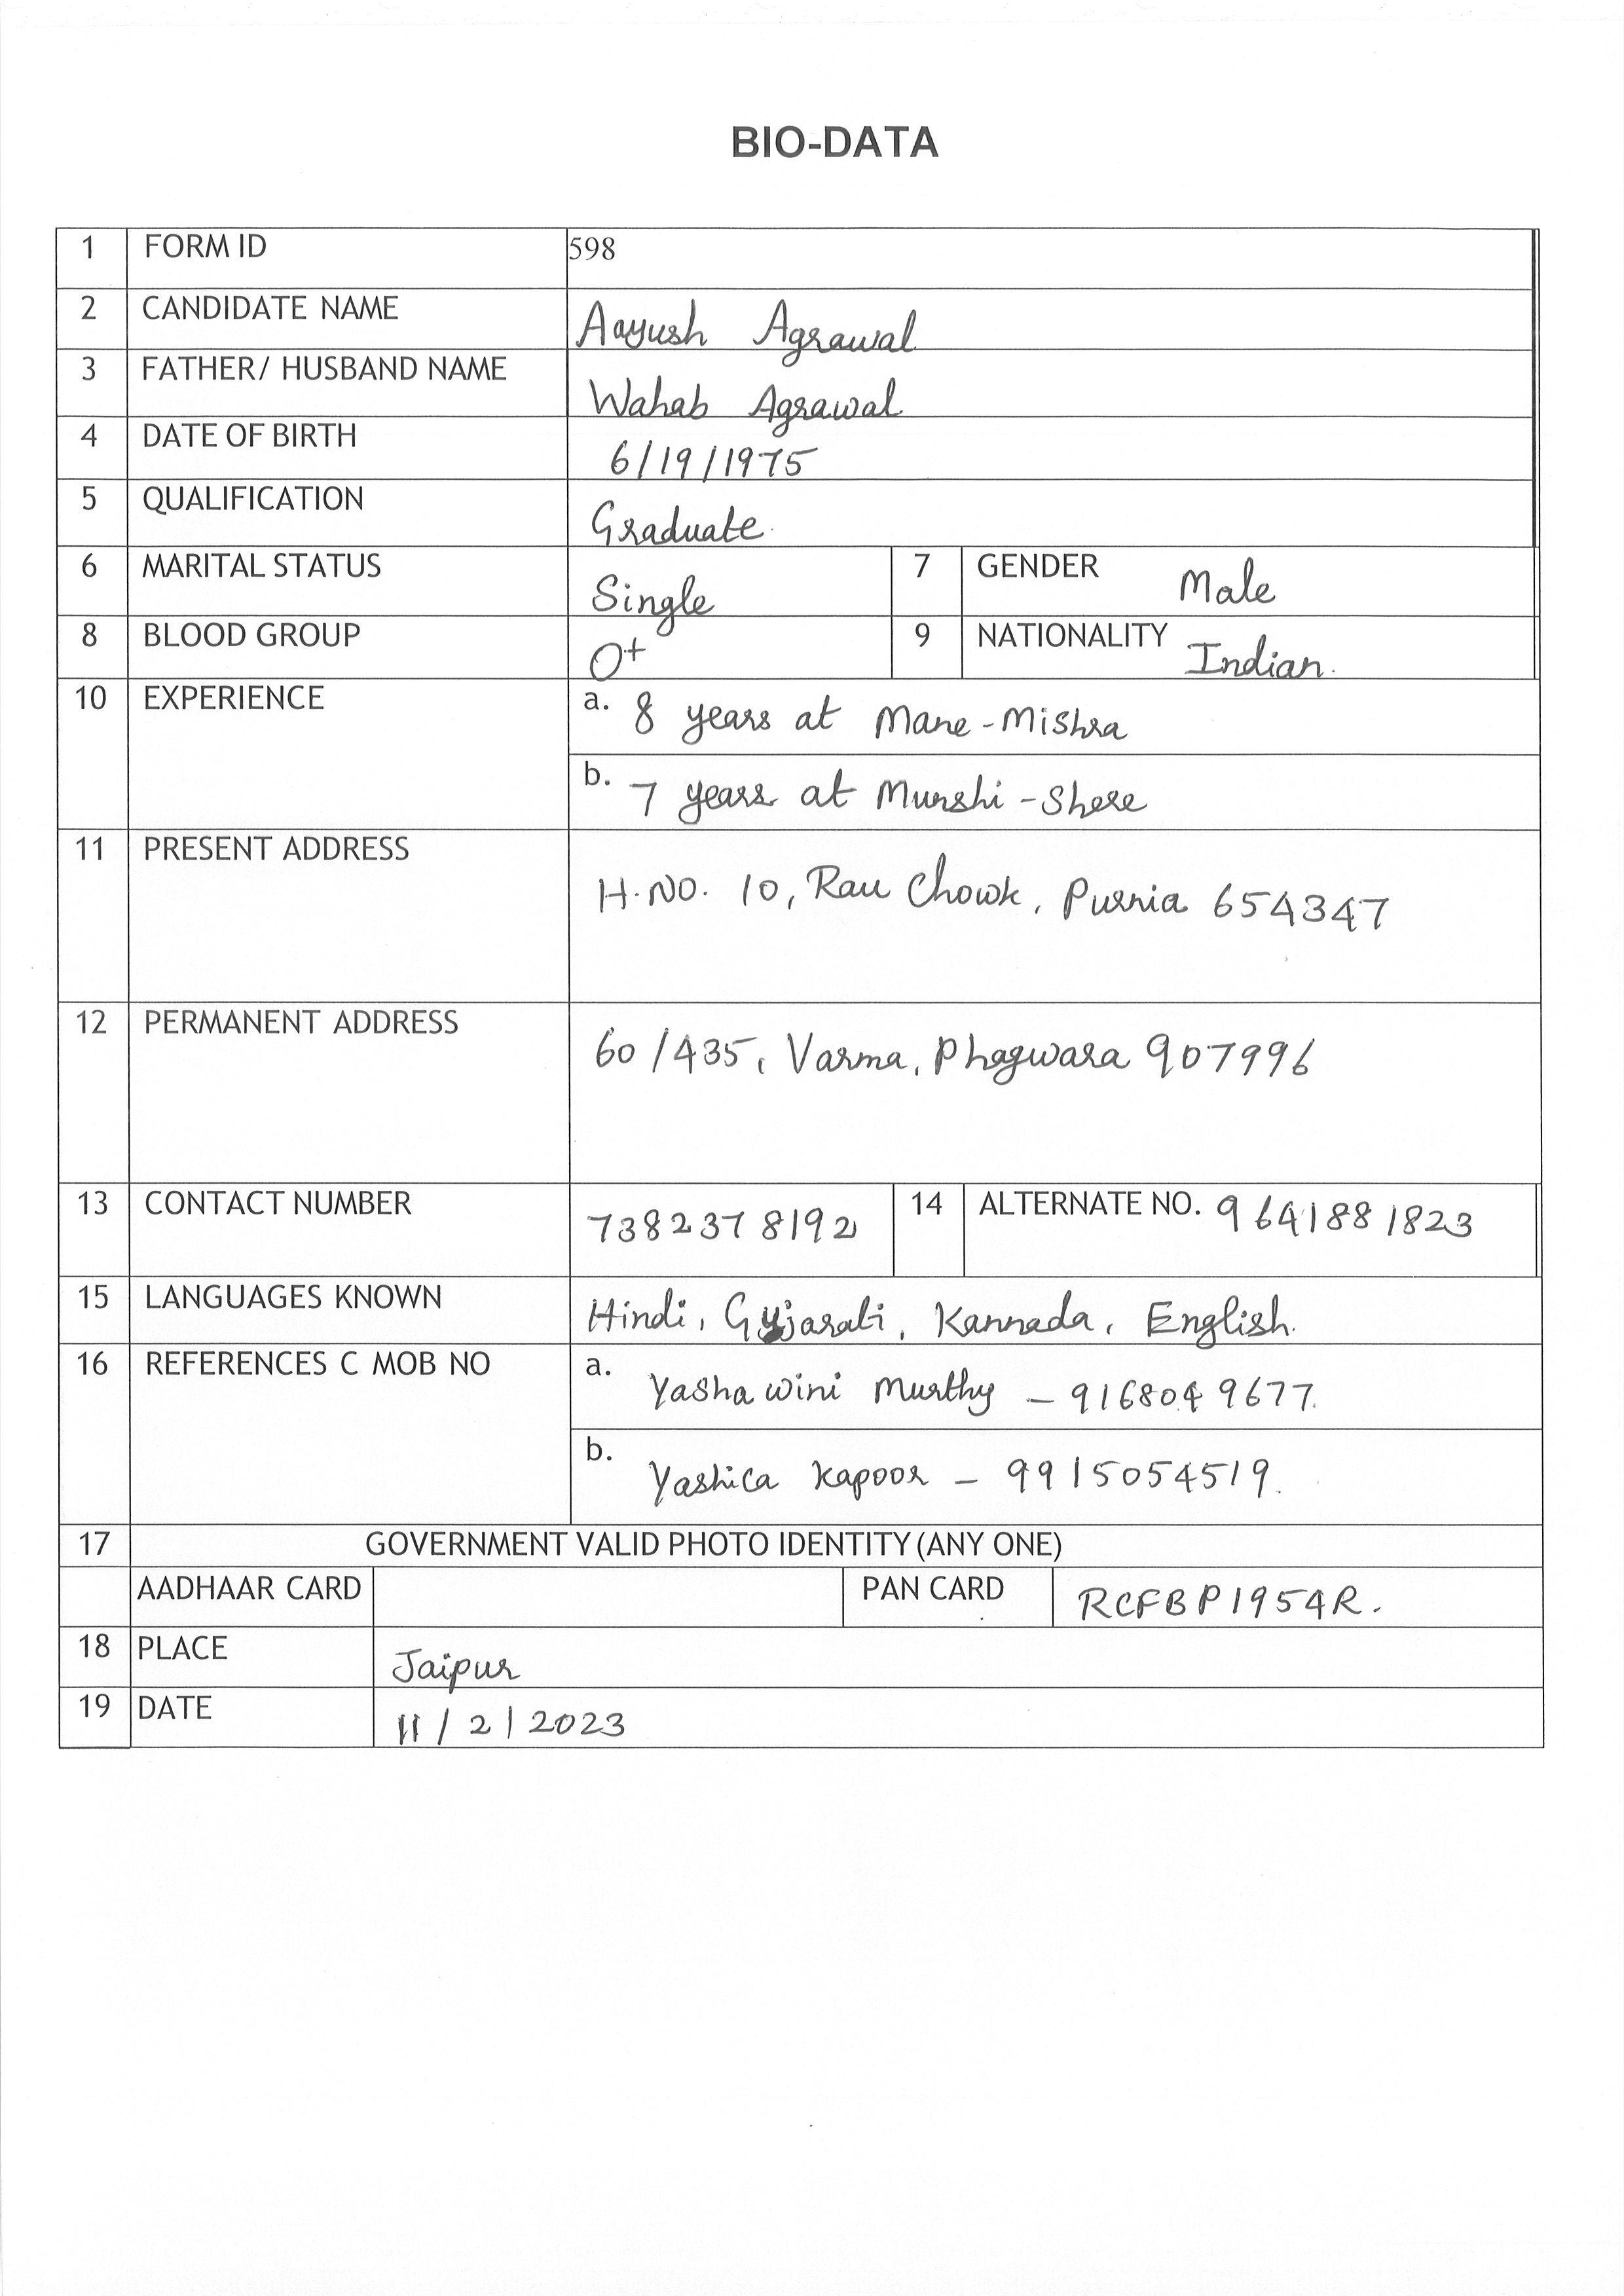 BIO-DATA
1 FORM ID 598
2 CANDIDATE NAME Aayush Agrawal
3 FATHER/ HUSBAND NAME Wahab Agrawal
4 DATE OF BIRTH 6/19/1975
5 QUALIFICATION Graduate.
6 MARITAL STATUS Single 7 GENDER Male
8 BLOOD GROUP O+ 9 NATIONALITY Indian.
10 EXPERIENCE a. 8 years at Mane-Mishra
b. 7 years at Munshi-Shere
11 PRESENT ADDRESS H.NO. 10, Rau Chowk, Purnia 654347
12 PERMANENT ADDRESS 60/435, Varma, Phagwara 907996
13 CONTACT NUMBER 7382378192 14 ALTERNATE NO. 9641881823
15 LANGUAGES KNOWN Hindi, Gujarati, Kannada, English.
16 REFERENCES C MOB NO a. Yashawini Murthy - 9168049677.
b. Yashica Kapoor - 9915054519.
17 GOVERNMENT VALID PHOTO IDENTITY (ANY ONE)
AADHAAR CARD PAN CARD RCFBP1954R.
18 PLACE Jaipur
19 DATE 11/2/2023